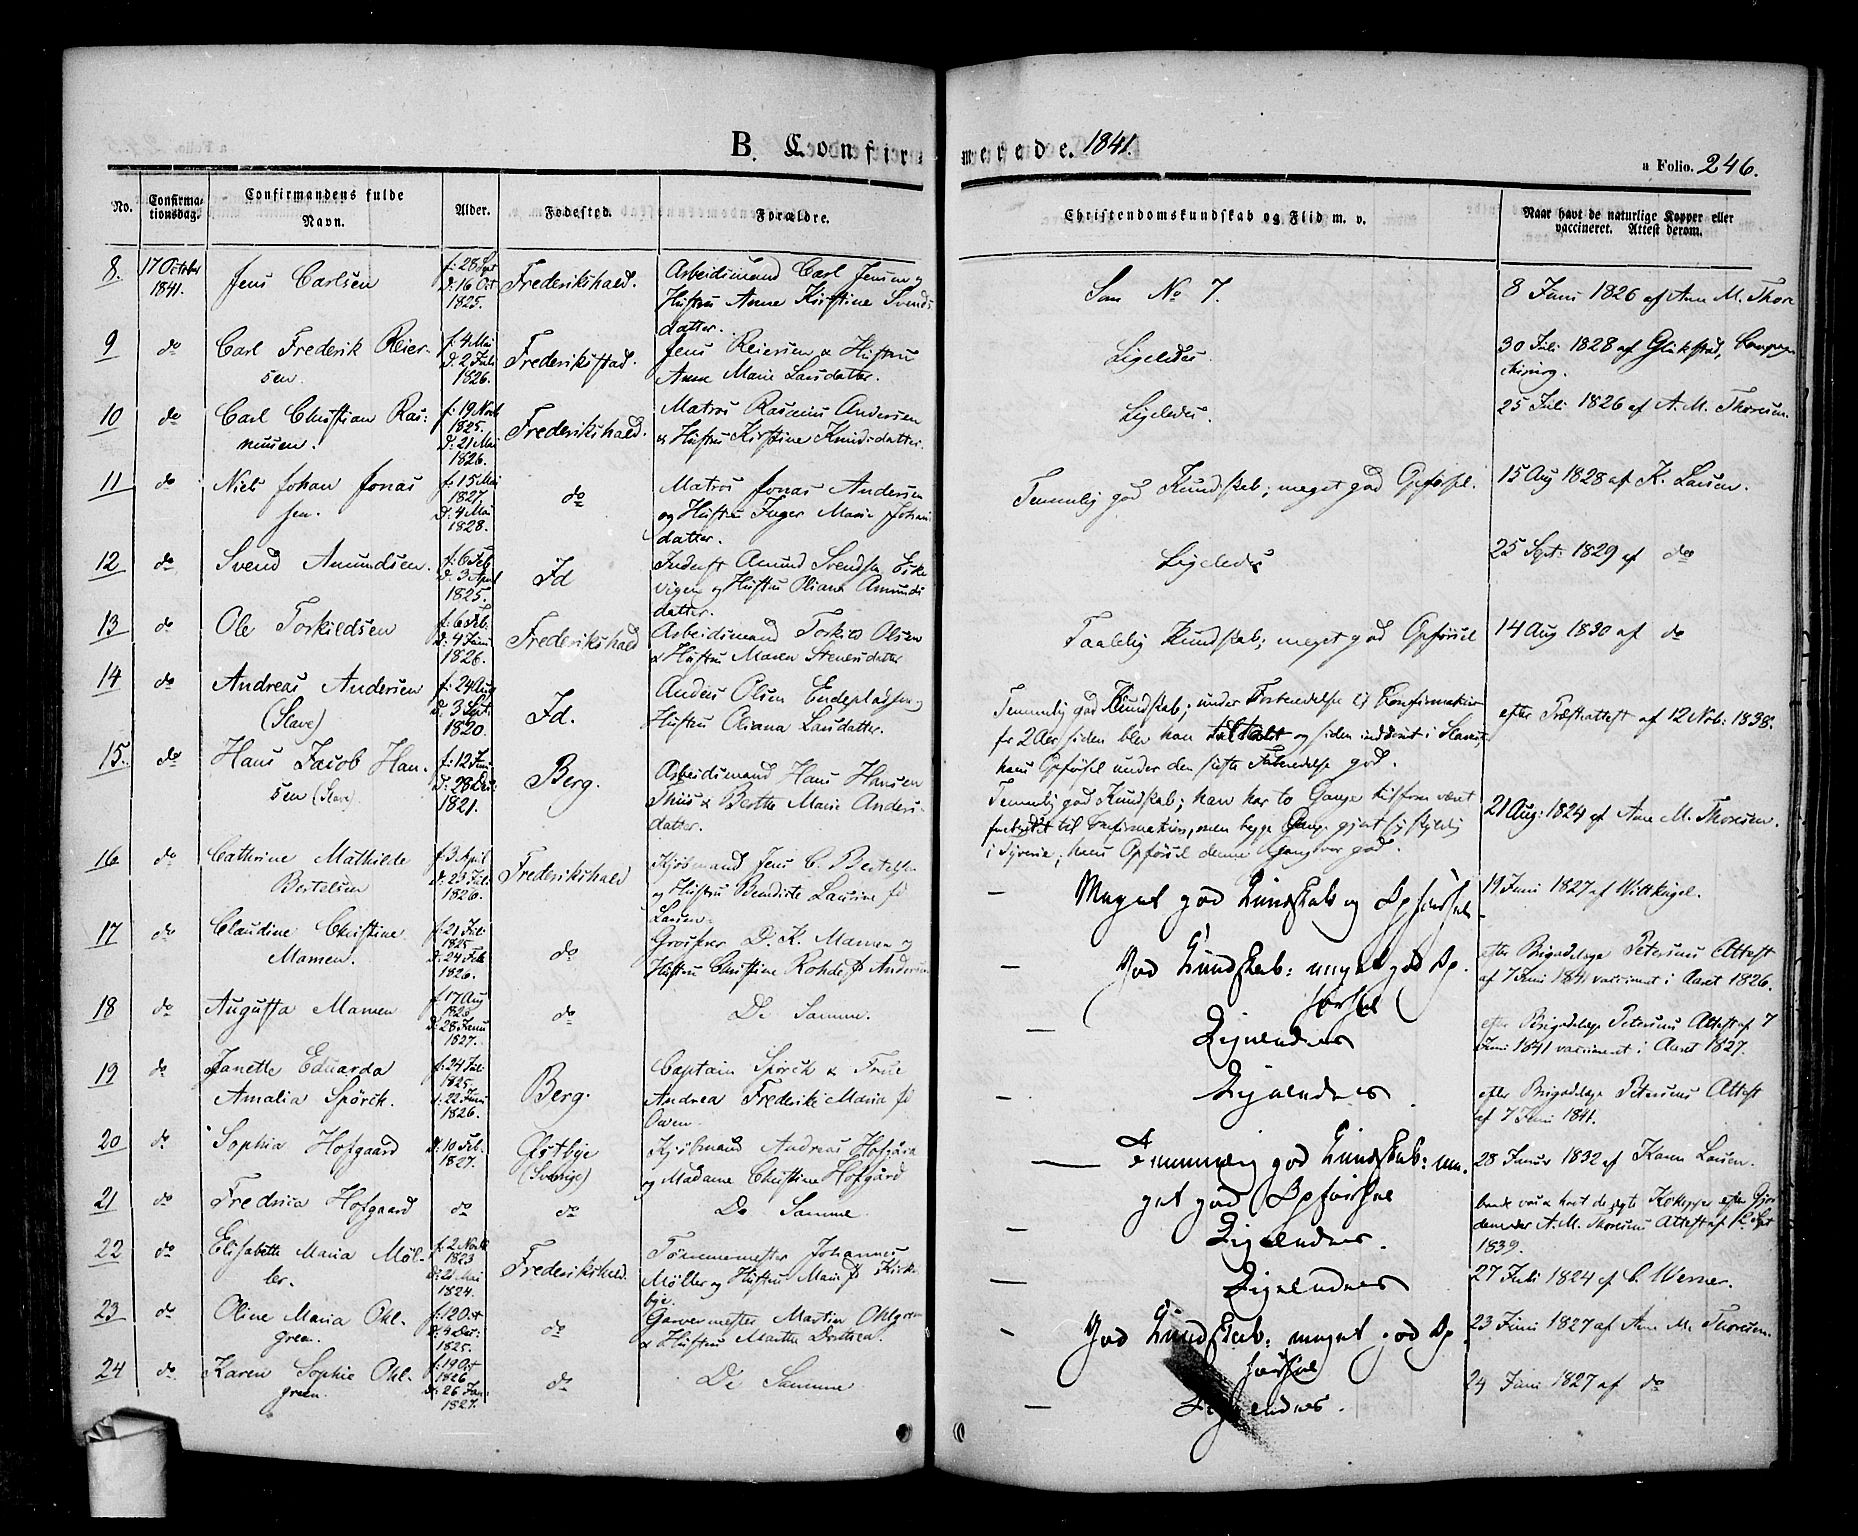 B. Confirmerede. 1841.
a Folio. 246.
No. Confirmationsdag. Confirmandens fulde Navn. Alder. Fødested. Forældre. Christendomskundskab og Flid m. v. Naar havt de naturlige Kopper eller vaccineret. Attest derom.
8. 17 October 1841. Jens Carlsen f: 28 Sept D: 16 Oct 1825. Frederikshald. Arbeidsmand Carl Jensen og Hustru Anne Kirstine Svendsdatter. Som No 7. 8 Juni 1826 af Ane M. Thore
9 do Carl Frederik Reiersen. f: 4 Mai D. 2 Juli 1826. Frederiksstad. Jens Reiersen & Hustru Anne Marie Larsdatter. Ligeledes. 30 Juli 1828 af Glükstad,
10 do Carl Christian Rasmusen. f: 19 Novb 1825. D: 21 Mai 1826. Frederikshald. Matros Rasmus Andersen & Hustru Kirstine Knudsdatter. Ligeledes. 25 Juli 1826 af A. M. Thoresen.
11 do Niels Johan Jonassen. f: 15 Mai 1827. D: 4 Mai 1828. do Matros Jonas Andersen og Hustru Inger Marie Johansdatter. Temmelig god Kundskab; meget god Opførsel. 15 Aug 1828 af K. Larsen.
12 do Svend Amundsen. f: 6 Feb D. 3 April 1825. Id Inderst Amund Svendsen og Hustru Oliane Amundsdatter. Ligeledes 25 Sept: 1829 af do
13 do Ole Torkildsen f: 6 Feb. D: 4 Juni 1826. Frederikshald Arbeidsmand Torkild Olsen & Hustru Maren Stenersdatter Taalelig Kundskab; meget god Opførsel 14 Aug 1830 af do
14 do Andreas Andersen (Slave) f: 24 Aug D: 3 Sept: 1820. Id. Anders Olsen Endeplassen og Hustru Oliana Larsdatter. Temmelig god Kundskab; under Forberedelse til Confirmation for 2 Aar siden blev han og siden inddømt i Slaveri; hans Opførsel under den sidste Forberedelse god. efter Præsteattest af 12 Nov: 1838.
15. do Hans Jacob Hansen (Slave). f: 12 Juni D: 28 Dec: 1821. Berg. Arbeidsmand Hans Hansen Thiis & Berthe Marie Andersdatter. Temmelig god Kundskab; han har to Gange tilforn været forberedet til Confirmation, men begge Gange gjort sig skyldig i Tyverie; hans Opførsel denne Gang var god. 21 Aug: 1824 af Ane M. Thoresen.
16 do Cathrine Mathilde Bertelsen f: 3 April D: 23 Juli 1826. Frederikshald Kjøbmand Jens C. Bertelsen og Hustru Benedicte Laurine f. Larsen. — Meget god Kundskab og Opførsel 19 Juni 1827 af Wittkugel.
17 do Claudine Christine Mamen. f: 21 Juli 1825. D: 24 Feb 1826. do Grosserer D. K. Mamen og Hustru Christine Rohde f. Andersen — God Kundskab: meget god Opførsel efter Brigadelæge Petersens Attest af 7 Juni 1841 vaccineret i Aaret 1826.
18 do Augusta Mamen f: 17 Aug 1826 D: 28 Janu 1827. do De Samme. — Ligeledes efter Brigadelæge Petersens Attest af 7 Juni 1841 vaccineret i Aaret 1827.
19 do Janette Eduarda Amalia Spørck. f: 24 Juli 1825. d: 22 Juni 1826. Berg. Captain Spørck & Frue Andrea Frederike Maria f. Owen. — Ligeledes. efter Brigadelæge Petersens Attest af 7 Juni 1841.
20 do Sophia Hofgaard d. 10 Feb. 1827. Østbye (Sverige) Kjøbmand Andreas Hofgaard og Madame Christine Hofgård — Temmelig god Kundskab: meget god Opførsel 28 Januar 1832 af Karen Larsen.
21 do Fredrica Hofgaard do do De Samme. — Ligeledes. efter Gjordemoder A. M. Thoresens Attest af 12 Sept 1839.
22 do Elisabeth Maria Møller. f: 2 Novb 1823 D: 21 Mai 1824. Frederikshald. Tømmermester Johannes Møller og Hustru Marie f. Kirkebye. — Ligeledes 27 Juli 1824 af C. Werner.
23 do Oline Maria Ohlgreen. f: 12 Oct D: 4 Dec: 1825. do Garvermester Martin Ohlgreen & Hustru Marthe Dorthea. — God Kundskab: meget god Opførsel 23 Juni 1827 af Ane M. Thoresen.
24 do Karen Sophie Ohlgreen. f: 19 Oct 1826 D: 26 Jan: 1827. do De Samme — Ligeledes. 24 Juni 1827 af do